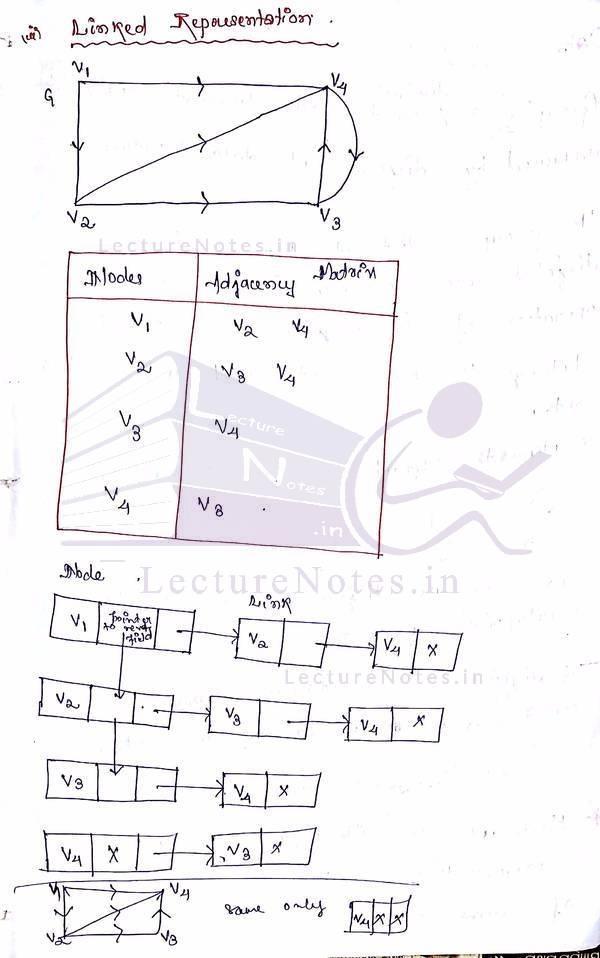 (iii) Linked Representation.
V1 V4
G
V2 V3
LectureNotes.in
Nodes Adjacency Matrix
V1 V2 V4
V2 V3 V4
V3 V4
V4 V3
Lecture
Notes
.in
LectureNotes.in
Node Link
V1 pointer to next field V2 V4 X
LectureNotes.in
V2 V3 V4 X
V3 V4 X
V4 X V3 X
V1 V4
same only V4 X X
V2 V3